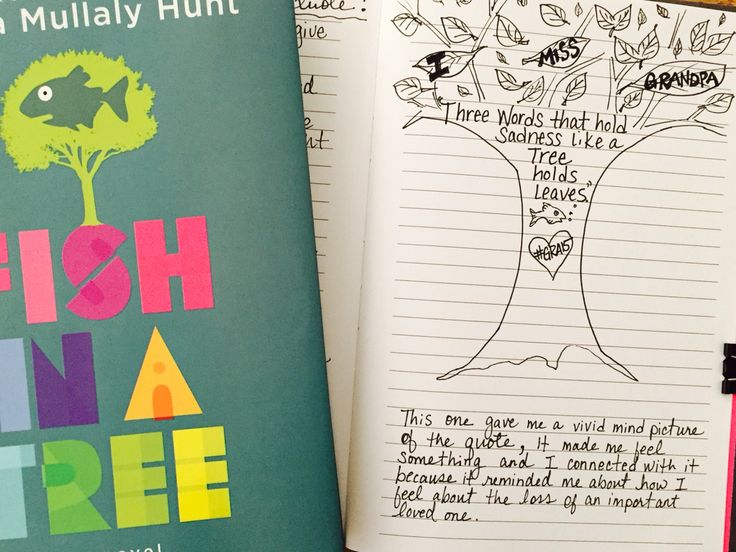 a Mullaly Hunt
FISH
IN A
TREE
give
I
MISS
GRANDPA
"Three Words that hold
Sadness like a
Tree
holds
Leaves."
#GRA15
This one gave me a vivid mind picture
of the quote, it made me feel
something and I connected with it
because it reminded me about how I
feel about the loss of an important
loved one.